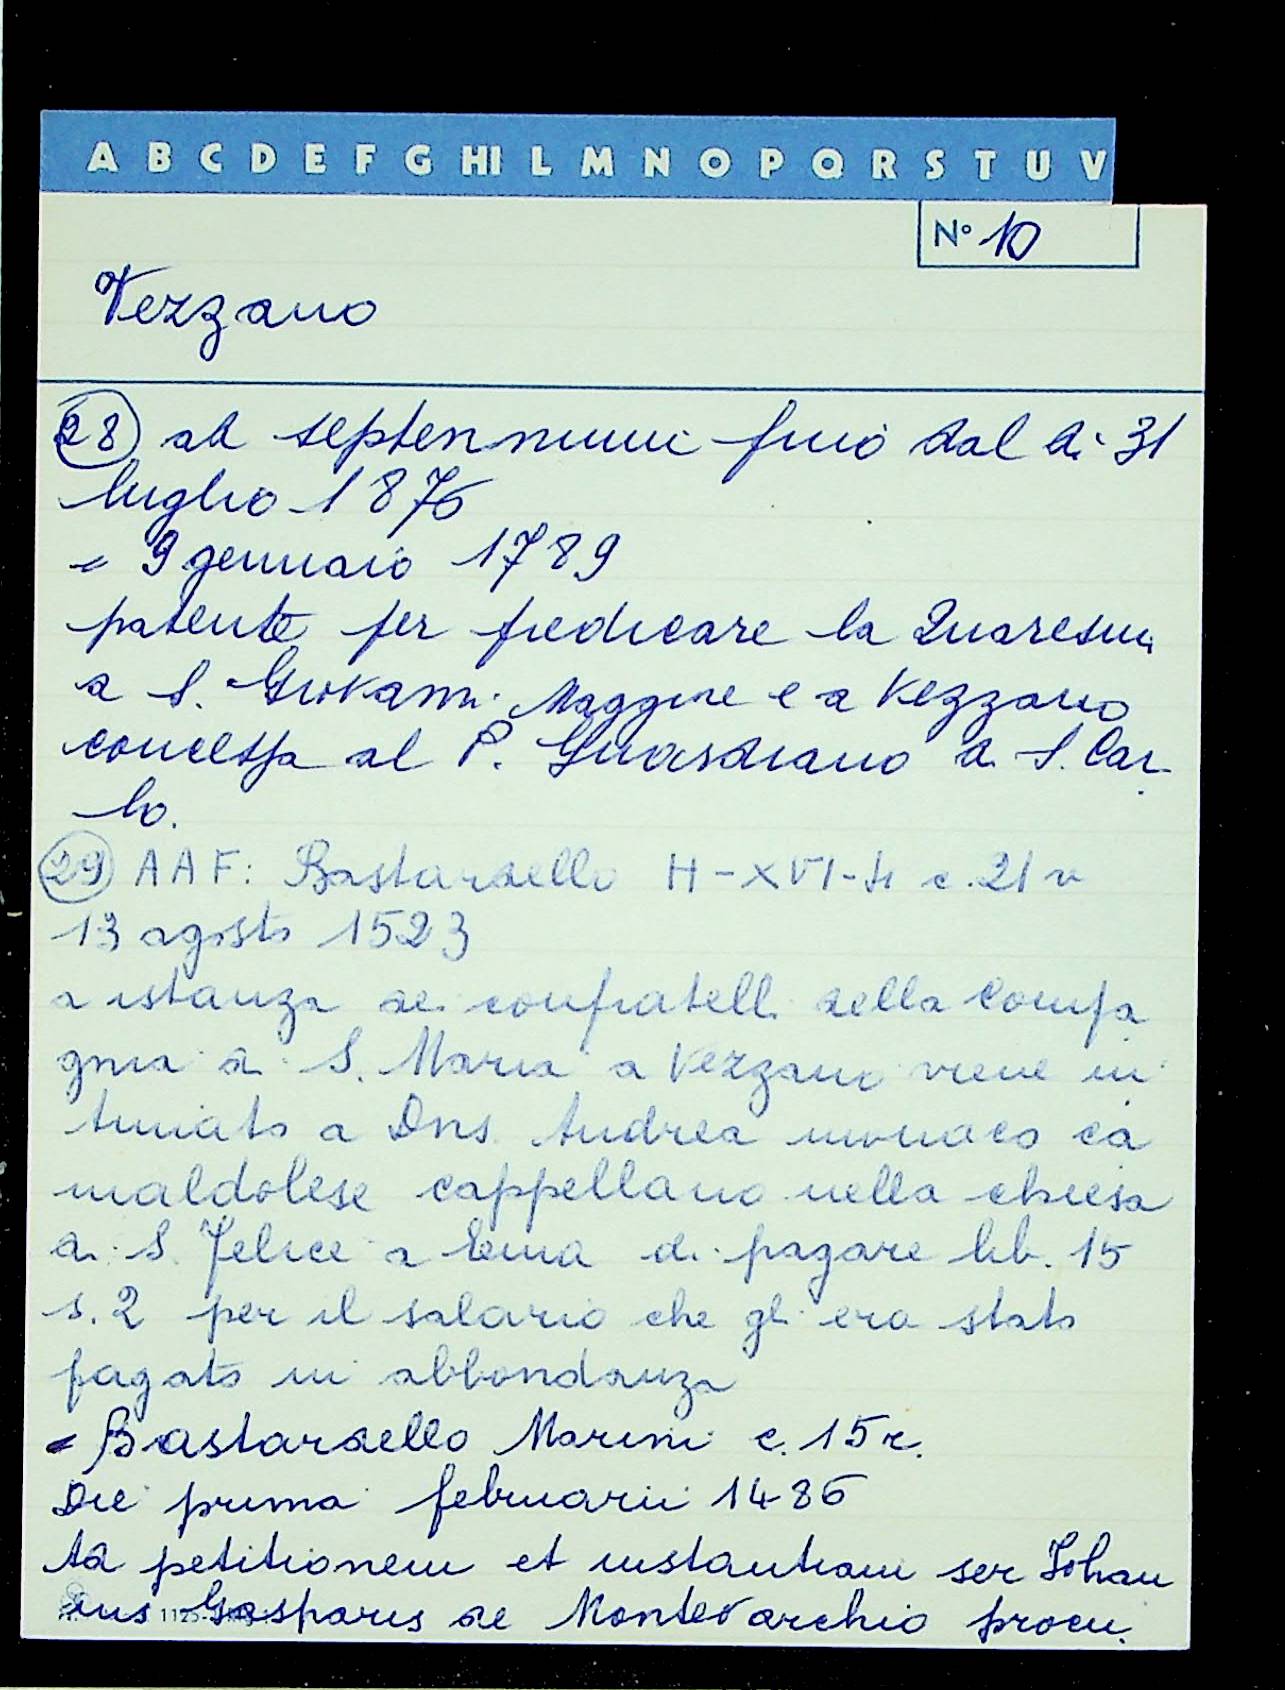 A B C D E F G HI L M N O P Q R S T U V
N° 10
Vezzano
28 ad septennium fino dal dì 31
luglio 1876
= 9 gennaio 1789
patente per predicare la Quaresima
a S. Giovanni Maggiore e a Vezzano
concessa al P. Guardiano di S. Car
lo.
29 AAF: Bastardello H-XVI-4 c. 21 v
13 agosto 1523
a istanza dei confratelli della Compa
gnia di S. Maria a Vezzano viene in
timato a Dns. Andrea monaco ca
maldolese cappellano nella chiesa
di S. Felice a Ema di pagare lib. 15
s. 2 per il salario che gli era stato
pagato in abbondanza
= Bastardello Marini c. 15 r.
Die prima februarii 1486
ad petitionem et instantiam ser Johan
nis Gasparis de Montevarchio procu.